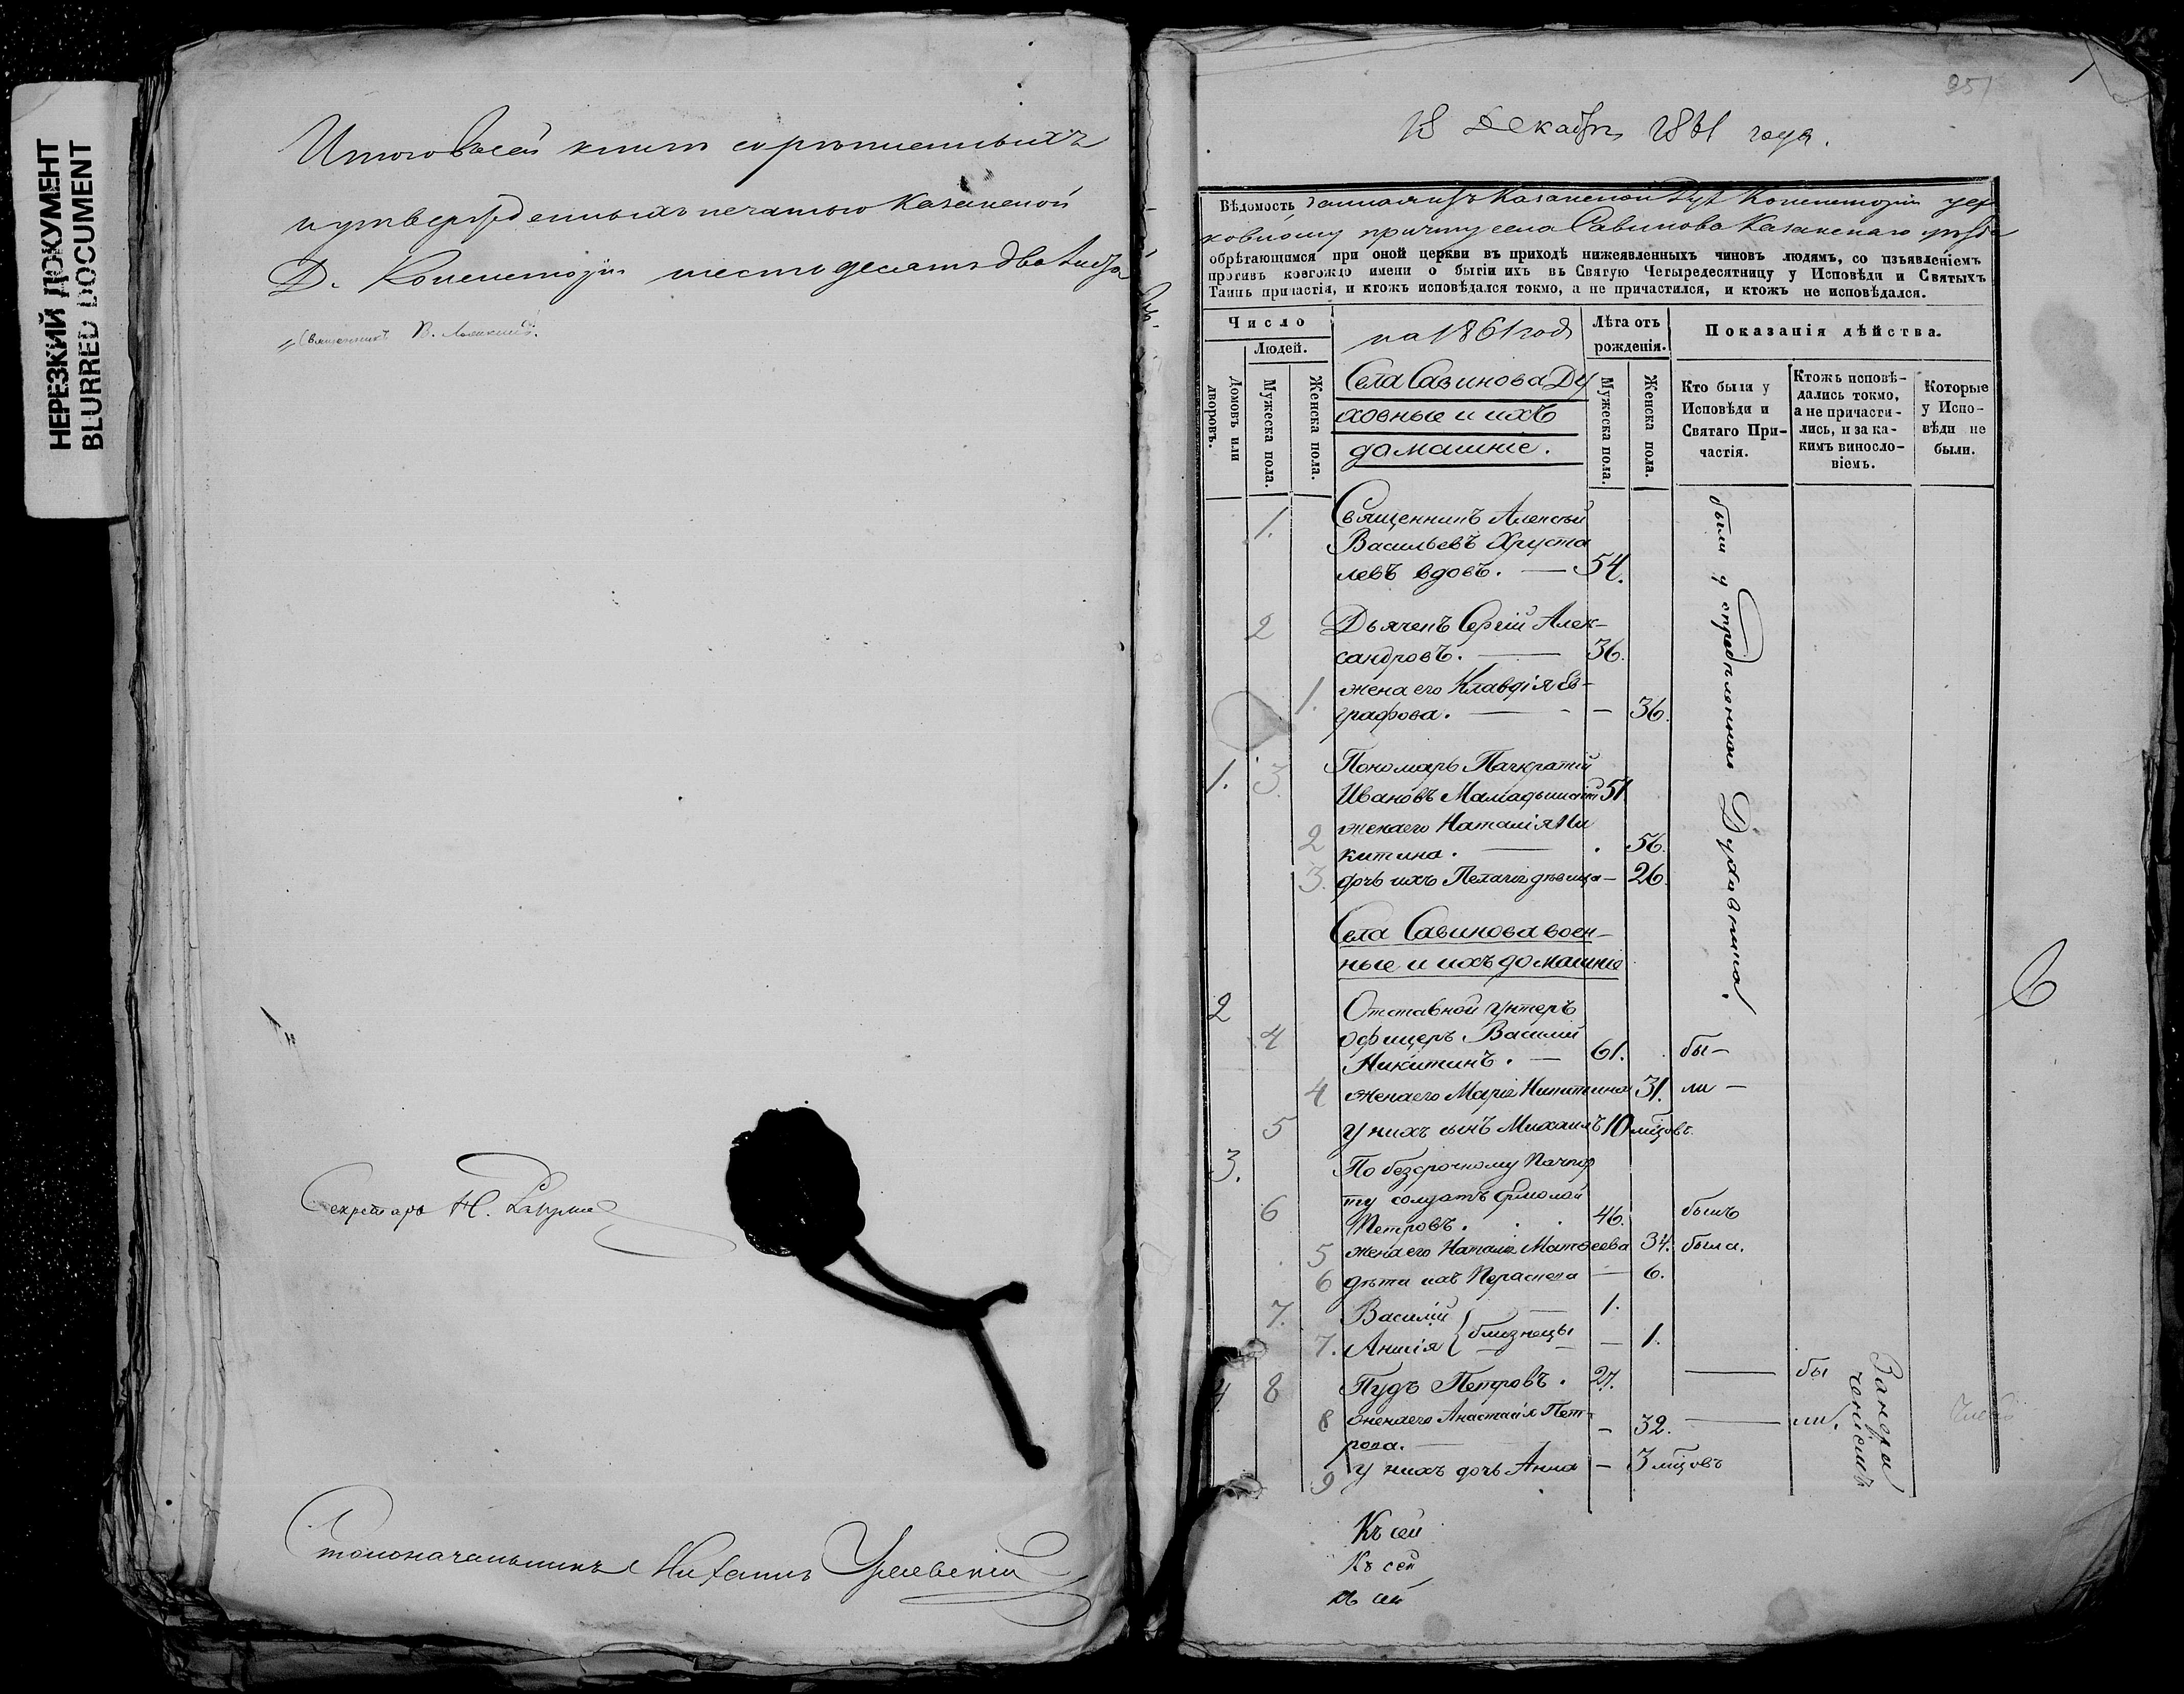 НЕРЕЗКИЙ ДОКУМЕНТ
BLURRED DOCUMENT
Итого всей книги скрѣпленныхъ
и утвержденныхъ печатью Казанской
Д. Консисторіи шестьдесятъ два листа
Священникъ В.
Секретарь Н.
Столоначальникъ
951
18 Декабря 1861 года.
Вѣдомость данная изъ Казанской Дух Консисторіи цер
ковному причту села Савинова Казанскаго уѣзда
обрѣтающимся при оной церкви въ приходѣ нижеявленныхъ чиновъ людямъ, со изъявленіемъ
противъ коегождо имени о бытіи ихъ въ Святую Четыредесятницу у Исповѣди и Святыхъ
Таинъ причастія, и ктожъ исповѣдался токмо, а не причастился, и ктожъ не исповѣдался.
Число
Людей.
Домовъ или дворовъ.
Мужеска пола.
Женска пола.
на 1861 годъ
Села Савинова Ду
ховные и ихъ
домашніе.
Лѣта отъ рожденія.
Мужеска пола.
Женска пола.
Показанія дѣйства.
Кто были у Исповѣди и Святаго Причастія.
Ктожъ исповѣдались токмо, а не причастились, и за какимъ винословіемъ.
Которые у Исповѣди не были.
1. Священникъ Алексѣй
Васильевъ Хруста
левъ вдовъ. — 54.
2 Дьячекъ Сергій Алек-
сандровъ. — 36.
1. жена его Клавдія Ев-
графова. — 36.
1. 3. Пономарь Панкратій
Ивановъ Мамадышскій 51
2 жена его Наталія Ни
китина. — 56.
3. дочь ихъ Пелагія дѣвица — 26.
были у опредѣленнаго Духовника.
Села Савинова воен-
ные и ихъ домашніе
2 Отставной унтеръ
4 офицеръ Василій
Никитинъ. — 61. бы-
4 жена его Марія Никитина 31. ли —
5 у нихъ сынъ Михаилъ 10 мѣцовъ.
3. По безсрочному Пачпор
6 ту солдатъ Ермолай
Петровъ. 46. былъ
5 жена его Наталія Матѳеева 34. была.
6 дѣти ихъ Параскева — 6.
7. Василій — 1.
близнецы
7. Анисія — 1.
4 8 Пудъ Петровъ. 27. — бы
8 жена его Анастасія Пет-
рова. — 32. — ли.
9 у нихъ дочь Анна — 3 мѣцовъ
Къ сей
Къ сей
Къ сей